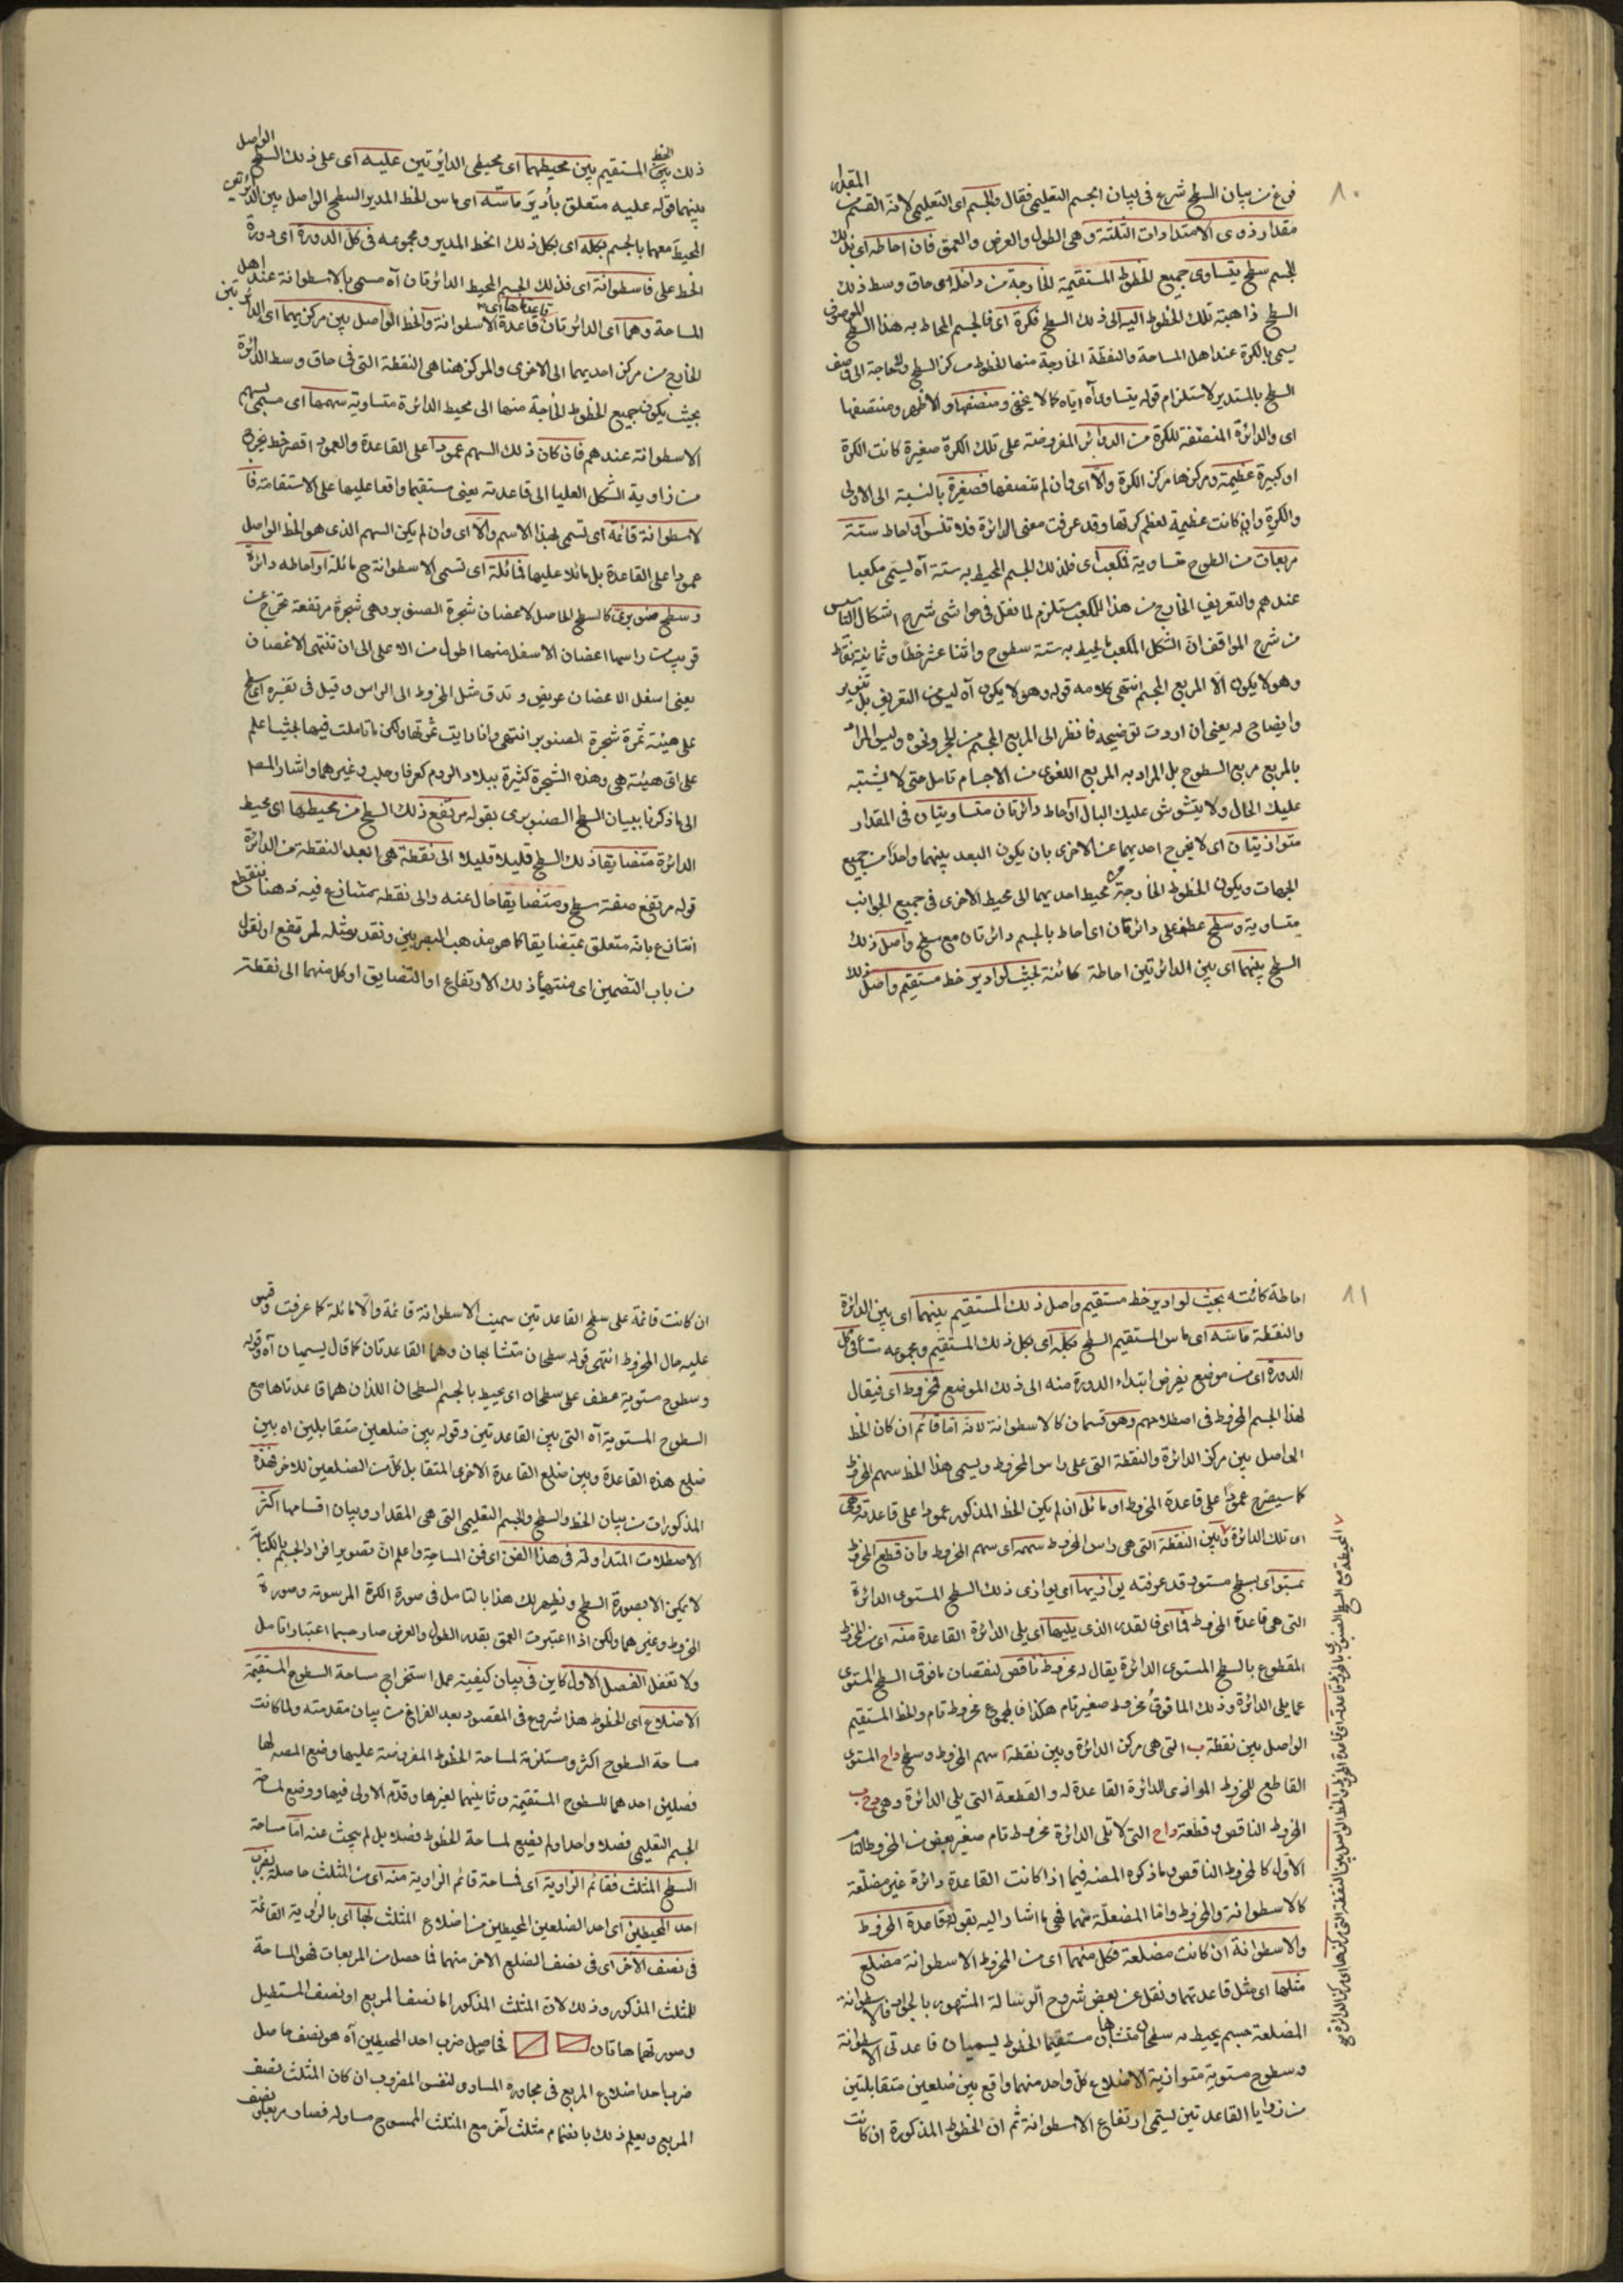 ١٠
فرغ من بيان السطح شرع فى بيان الجسم التعليمى فقال والجسم اى التعليمى لانه القسم من المقدار
مقدار ذوى الامتدادات الثلثة وهى الطول والعرض والعمق فان احاطه اى بذلك
الجسم سطح يتساوى جميع الخطوط المستقيمة الخارجة من داخله اى حاق وسط ذلك
السطح ذاهبة تلك الخطوط اليه الى ذلك السطح فكرة اى فالجسم المحاط به هذا السطح الموصوف
يسمى بالكرة عند اهل المساحة والنقطة الخارجة منها الخطوط مركز السطح ولا حاجة الى وصف
السطح بالمستدير لاستلزام قوله يتساوى آه اياه كما لا يخفى ومنصفها والاظهر ومنتصفها
اى والدائرة المنصفة للكرة من الدوائر المفروضة على تلك الكرة صغيرة كانت الكرة
او كبيرة عظيمة ومركزها مركز الكرة والا اى وان لم تنصفها فصغيرة بالنسبة الى الاولى
والكرة وان كانت عظيمة لعظم كرتها وقد عرفت معنى الدائرة فلا تنس او احاط ستة
مربعات من السطوح متساوية فمكعب اى فذلك الجسم المحيط به ستة آه يسمى مكعبا
عندهم والتعريف الخارج من هذا المكعب مستلزم لما نقل فى حواشى شرح اشكال التاسيس
من شرح المواقف ان الشكل المكعب المحيط به ستة سطوح واثنا عشر خطا وثمانية نقاط
وهو لا يكون الا المربع المجسم انتهى كلامه قوله وهو لا يكون آه ليس من التعريف بل تنوير
وايضاح له يعنى ان اردت توضيحه فانظر الى المربع المجسم من الحجر ونحوه وليس المراد
بالمربع مربع السطوح بل المراد به المربع اللغوى من الاجسام تامل حتى لا يشتبه
عليك الحال ولا يتشوش عليك البال او احاط دائرتان متساويتان فى المقدار
متوازيتان اى لا يخرج احديهما عن الاخرى بان يكون البعد بينهما واحدا من جميع
الجهات ويكون الخطوط الخارجة من محيط احديهما الى محيط الاخرى فى جميع الجوانب
متساوية وسطح عطف على دائرتان اى احاط بالجسم دائرتان مع سطح واصل ذلك
السطح بينهما اى بين الدائرتين احاطة كائنة بحيث لو ادير خط مستقيم واصل ذلك
ذلك الخط المستقيم بين محيطهما اى محيطى الدائرتين عليه اى على ذلك السطح الواصل
بينهما قوله عليه متعلق بادير ماسه اى ماس الخط المدير السطح الواصل بين الدائرتين
المحيط معهما بالجسم بكله اى بكل ذلك الخط المدير ومجموعه فى كل الدورة اى دورة
الخط على فاسطوانة اى فذلك الجسم المحيط الدائرتان آه مسمى بالاسطوانة عند اهل
المساحة وهما اى الدائرتان قاعدتاها اى قاعدة الاسطوانة والخط الواصل بين مركزيهما اى الدائرتين
الخارج من مركز احديهما الى الاخرى والمركز هنا هى النقطة التى فى حاق وسط الدائرة
بحيث يكون جميع الخطوط الخارجة منها الى محيط الدائرة متساوية سهمها اى مسمى بسهم
الاسطوانة عندهم فان كان ذلك السهم عمودا على القاعدة والعمود اقصر خط يخرج
من زاوية الشكل العليا الى قاعدته يعنى مستقيما واقعا عليها على الاستقامة فا
لاسطوانة قائمة اى تسمى بهذا الاسم والا اى وان لم يكن السهم الذى هو الخط الواصل
عمودا على القاعدة بل مائلا عليها فمائلة اى تسمى الاسطوانة ح مائلة او احاطه دائرة
وسطح صنوبرى كالسطح الحاصل لاغصان شجرة الصنوبر وهى شجرة مرتفعة تخرج عن
قريب من راسها اغصان الاسفل منها اطول من الاعلى الى ان تنتهى الاغصان
يعنى اسفل الاغصان عريض وتدق مثل المخروط الى الراس وقيل فى تفسيره اى سطح
على هيئة ثمرة شجرة الصنوبر انتهى وانا رايت ثمرتها ولكن ما تاملت فيها بحيث اعلم
على اى هيئة هى وهذه الشجرة كثيرة ببلاد الروم كعرفا وحلب وغيرهما واشار المص
الى ما ذكرنا ببيان السطح الصنوبرى بقوله مرتفع ذلك السطح من محيطها اى محيط
الدائرة متضايقا ذلك السطح قليلا قليلا الى نقطة هى ابعد النقطة من الدائرة
قوله مرتفع صفة سطح ومتضايقا حال عنه والى نقطة يتنازع فيه
انتازع بانه متعلق بمتضايقا كما هو مذهب البصريين ونقدر مثله لمرتفع او نقول
من باب التضمين اى منتهيا ذلك الارتفاع او التضايق او كل منهما الى نقطة
١١
احاطة كائنه بحيث لو ادير خط مستقيم واصل ذلك المستقيم بينهما اى بين الدائرة
والنقطة ماسه اى ماس المستقيم السطح بكله اى بكل ذلك المستقيم ومجموعه فى كل
الدورة اى من موضع يفرض ابتداء الدورة منه الى ذلك الموضع فمخروط اى فيقال
لهذا الجسم المخروط فى اصطلاحهم وهو قسمان كالاسطوانة لانه اما قائم ان كان الخط
الواصل بين مركز الدائرة والنقطة التى على راس المخروط ويسمى هذا الخط سهم المخروط
كما سيصرح عمودا على قاعدة المخروط او مائل ان لم يكن الخط المذكور عمودا على قاعدته وهى
اى تلك الدائرة وبين النقطة التى هى راس المخروط سهمه اى سهم المخروط وان قطع المخروط
بمستو اى بسطح مستو وقد عرفته يوازيها اى يوازى ذلك السطح المستوى الدائرة
التى هى قاعدة المخروط فما اى فالقدر الذى يليها اى يلى الدائرة القاعدة منه اى من المخروط
المقطوع بالسطح المستوى الدائرة يقال له مخروط ناقص لنقصان ما فوق السطح المستوى
عما يلى الدائرة وذلك الما فوق مخروط صغير تام هكذا فالمجموع مخروط تام والخط المستقيم
الواصل بين نقطة ب التى هى مركز الدائرة وبين نقطة ا سهم المخروط وسطح داح المستوى
القاطع للمخروط الموازى للدائرة القاعدة له والقطعة التى يلى الدائرة وهى
المخروط الناقص وقطعة داح التى لا تلى الدائرة مخروط تام صغير بعض من المخروط التام
الاول كالمخروط الناقص وما ذكره المصنف فيما اذا كانت القاعدة دائرة غير مضلعة
كالاسطوانة والمخروط واما المضلعة منهما فهى ما اشار اليه بقوله وقاعدة المخروط
والاسطوانة ان كانت مضلعة فكل منهما اى من المخروط الاسطوانة مضلع
مثلها اى مثل قاعدتهما ونقل عن بعض شروح الرسالة المشهور بالجوار فالاسطوانة
المضلعة جسم يحيط به سطحان متشابهان مستقيما الخطوط يسميان قاعدتى الاسطوانة
وسطوح مستوية متوازية الاضلاع كل واحد منهما واقع بين ضلعين متقابلتين
من زوايا القاعدتين يسمى ارتفاع الاسطوانة ثم ان الخطوط المذكورة ان كانت
ان كانت قائمة على سطح القاعدتين سميت الاسطوانة قائمة والا مائلة كما عرفت وقس
عليه حال المخروط انتهى قوله سطحان متشابهان وهما القاعدتان كما قال يسميان آه وقوله
وسطوح مستوية عطف على سطحان اى يحيط بالجسم السطحان اللذان هما قاعدتاها مع
السطوح المستوية آه التى بين القاعدتين وقوله بين ضلعين متقابلين اه بين
ضلع هذه القاعدة وبين ضلع القاعدة الاخرى المتقابل كل من الضلعين للاخر فهذه
المذكورات من بيان الخط والسطح والجسم التعليمى التى هى المقدار وبيان اقسامها اكثر
الاصطلاحات المتداولة فى هذا الفن اى فن المساحة واعلم ان تصوير افراد الجسم بالكتابة
لا يمكن الا بصورة السطح ويظهر لك هذا بالتامل فى صورة الكرة المرسومة وصورة
المخروط وغيرهما ولكن اذا اعتبرت العمق بقدر الطول والعرض صار جسما اعتبارا تامل
ولا تغفل الفصل الاول كاين فى بيان كيفية عمل استخراج مساحة السطوح المستقيمة
الاضلاع اى الخطوط هذا شروع فى المقصود بعد الفراغ من بيان مقدمته ولما كانت
مساحة السطوح اكثر ومستلزمة لمساحة الخطوط المفروضة عليها وضع المصنف لها
فصلين احدهما للسطوح المستقيمة وثانيهما لغيرها وقدم الاولى فيها ووضع لمساحة
الجسم التعليمى فصلا واحدا ولم يضع لمساحة الخطوط فصلا بل لم يبحث عنه اما مساحة
السطح المثلث فقائم الزاوية اى فمساحة قائم الزاوية منه اى من المثلث حاصلة بضرب
احد المحيطين اى احد الضلعين المحيطين من اضلاع المثلث بها اى بالزاوية القائمة
فى نصف الاخر اى فى نصف الضلع الاخر منهما فما حصل من المربعات فهو المساحة
للمثلث المذكور وذلك لان المثلث المذكور اما نصف المربع او نصف المستطيل
وصورتهما هاتان فحاصل ضرب احد المحيطين آه هو نصف حاصل
ضرب احد اضلاع المربع فى مجاوره المساوى لنفس المضروب ان كان المثلث نصف
المربع ويعلم ذلك بانضمام مثلث آخر مع المثلث الممسوح مساو له فصار مربعا